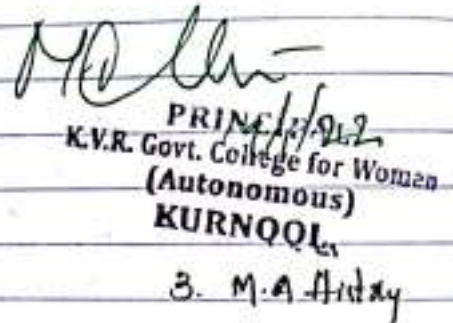 K.V.R. Govt. College for Women
(Autonomous)
KURNOOL
3. M.A History